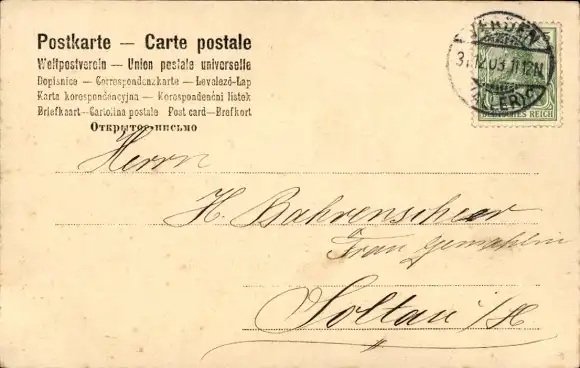 Postkarte — Carte postale
Weltpostverein — Union postale universelle
Dopisnice — Correspondenzkarte — Levelező-Lap
Karta korespondencyjna — Korespondenční listek
Briefkaart—Cartolina postale Post card—Brefkort
Открытое письмо
VERDEN
31.12.03. 11-12N.
(ALLER)
DEUTSCHES REICH
Herrn
H. Bahrenscheer
Frau Gemahlin
Soltau i/H